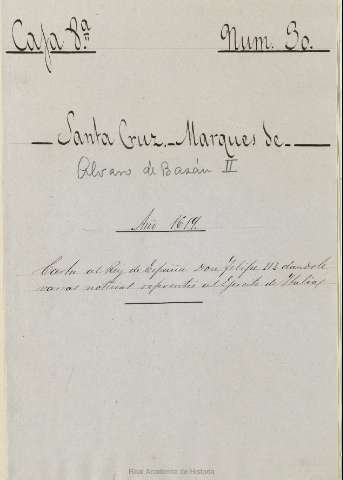 Caja 8.ª Num. 30.
Santa Cruz.- Marques de-
Alvaro de Bazán II
Año 1619.
Carta al Rey de España Don Felipe III dandole
varias noticias referentes al Ejercito de Italia
Real Academia de Historia